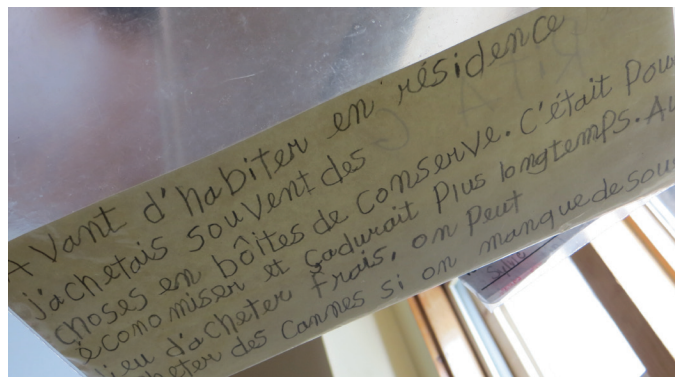 Avant d'habiter en résidence
j'achetais souvent des
choses en boîtes de conserve. C'était Pour
économiser et çadurait Plus longtemps. Au
lieu d'acheter Frais, on Peut
acheter des cannes si on manque de